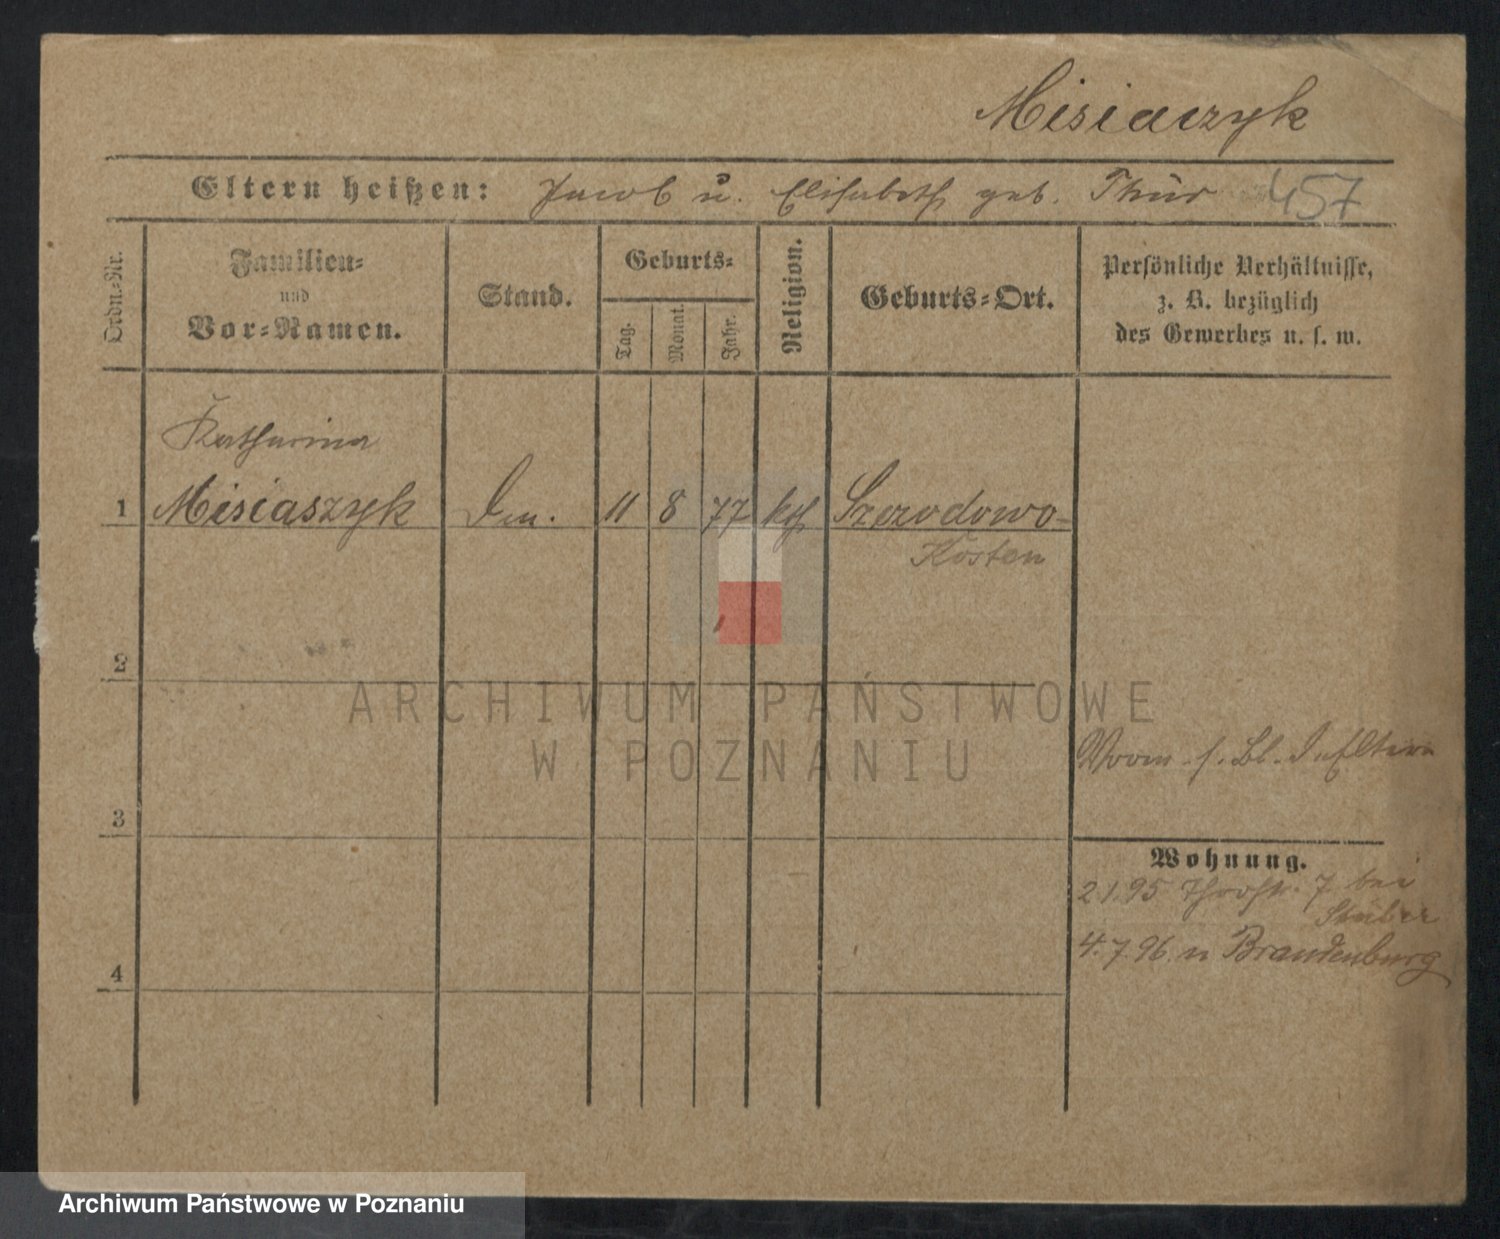 Misiaczyk
Eltern heißen: Jacob u. Elisabeth geb. Thür 457
Ordn.-Nr.
Familien-
und
Vor-Namen.
Stand.
Geburts-
Tag.
Monat.
Jahr.
Religion.
Geburts-Ort.
Persönliche Verhältnisse,
z. B. bezüglich
des Gewerbes u. s. w.
Katharina
1 Misiaszyk 11 8 77 kth
Kosten
2
ARCHIWUM PAŃSTWOWE
W POZNANIU
3
Wohnung.
2.1.95 7 bei
Stüber
4.7.96 n Brandenburg
4
Archiwum Państwowe w Poznaniu